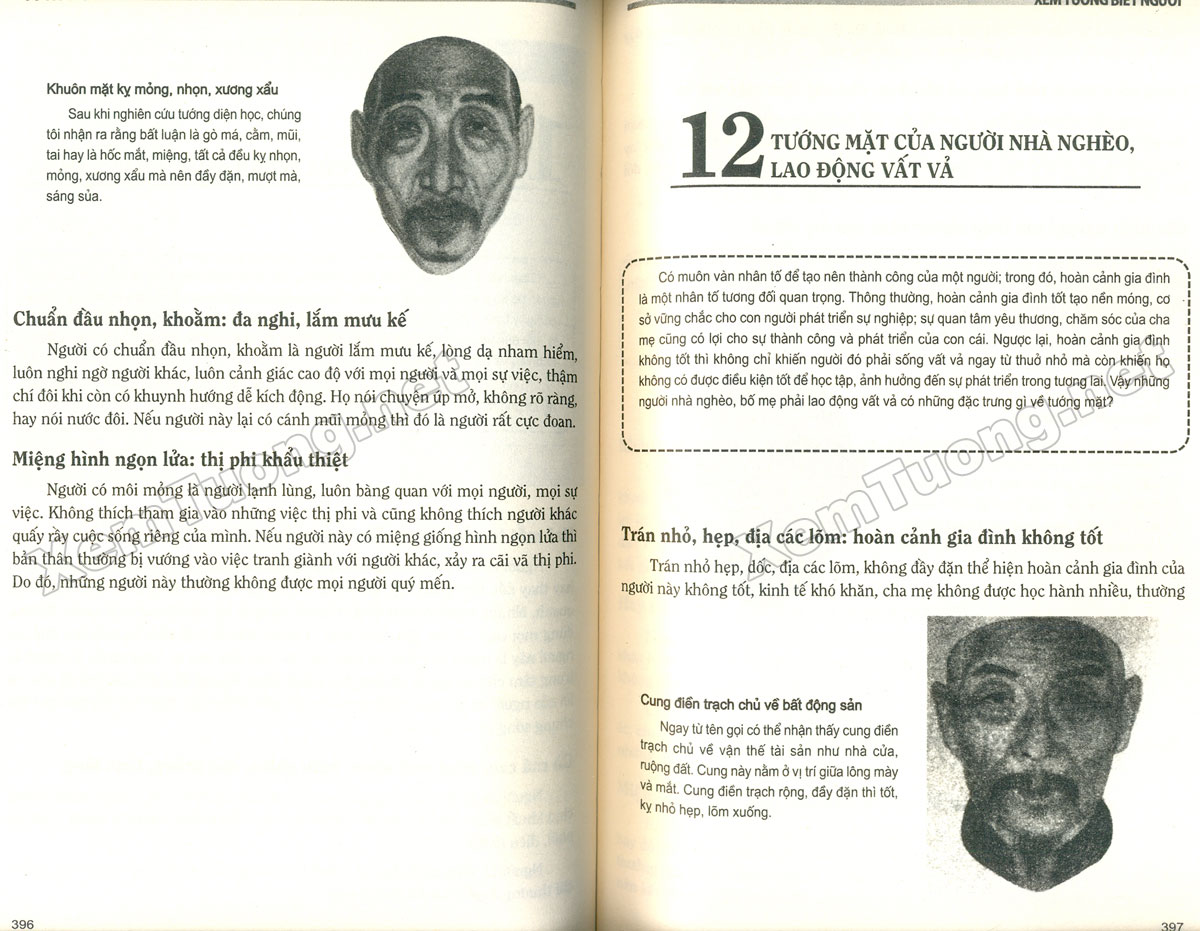 Khuôn mặt kỵ mỏng, nhọn, xương xẩu
Sau khi nghiên cứu tướng diện học, chúng
tôi nhận ra rằng bất luận là gò má, cằm, mũi,
tai hay là hốc mắt, miệng, tất cả đều kỵ nhọn,
mỏng, xương xẩu mà nên đầy đặn, mượt mà,
sáng sủa.
Chuẩn đầu nhọn, khoằm: đa nghi, lắm mưu kế
Người có chuẩn đầu nhọn, khoằm là người lắm mưu kế, lòng dạ nham hiểm,
luôn nghi ngờ người khác, luôn cảnh giác cao độ với mọi người và mọi sự việc, thậm
chí đôi khi còn có khuynh hướng dễ kích động. Họ nói chuyện úp mở, không rõ ràng,
hay nói nước đôi. Nếu người này lại có cánh mũi mỏng thì đó là người rất cực đoan.
Miệng hình ngọn lửa: thị phi khẩu thiệt
Người có môi mỏng là người lạnh lùng, luôn bàng quan với mọi người, mọi sự
việc. Không thích tham gia vào những việc thị phi và cũng không thích người khác
quấy rầy cuộc sống riêng của mình. Nếu người này có miệng giống hình ngọn lửa thì
bản thân thường bị vướng vào việc tranh giành với người khác, xảy ra cãi vã thị phi.
Do đó, những người này thường không được mọi người quý mến.
396
XEM TƯỚNG BIẾT NGƯỜI
12 TƯỚNG MẶT CỦA NGƯỜI NHÀ NGHÈO,
LAO ĐỘNG VẤT VẢ
Có muôn vàn nhân tố để tạo nên thành công của một người; trong đó, hoàn cảnh gia đình
là một nhân tố tương đối quan trọng. Thông thường, hoàn cảnh gia đình tốt tạo nền móng, cơ
sở vững chắc cho con người phát triển sự nghiệp; sự quan tâm yêu thương, chăm sóc của cha
mẹ cũng có lợi cho sự thành công và phát triển của con cái. Ngược lại, hoàn cảnh gia đình
không tốt thì không chỉ khiến người đó phải sống vất vả ngay từ thuở nhỏ mà còn khiến họ
không có được điều kiện tốt để học tập, ảnh hưởng đến sự phát triển trong tương lai. Vậy những
người nhà nghèo, bố mẹ phải lao động vất vả có những đặc trưng gì về tướng mặt?
Trán nhỏ, hẹp, địa các lõm: hoàn cảnh gia đình không tốt
Trán nhỏ hẹp, dốc, địa các lõm, không đầy đặn thể hiện hoàn cảnh gia đình của
người này không tốt, kinh tế khó khăn, cha mẹ không được học hành nhiều, thường
Cung điền trạch chủ về bất động sản
Ngay từ tên gọi có thể nhận thấy cung điền
trạch chủ về vận thế tài sản như nhà cửa,
ruộng đất. Cung này nằm ở vị trí giữa lông mày
và mắt. Cung điền trạch rộng, đầy đặn thì tốt,
kỵ nhỏ hẹp, lõm xuống.
397
XemTuong.net
XemTuong.net